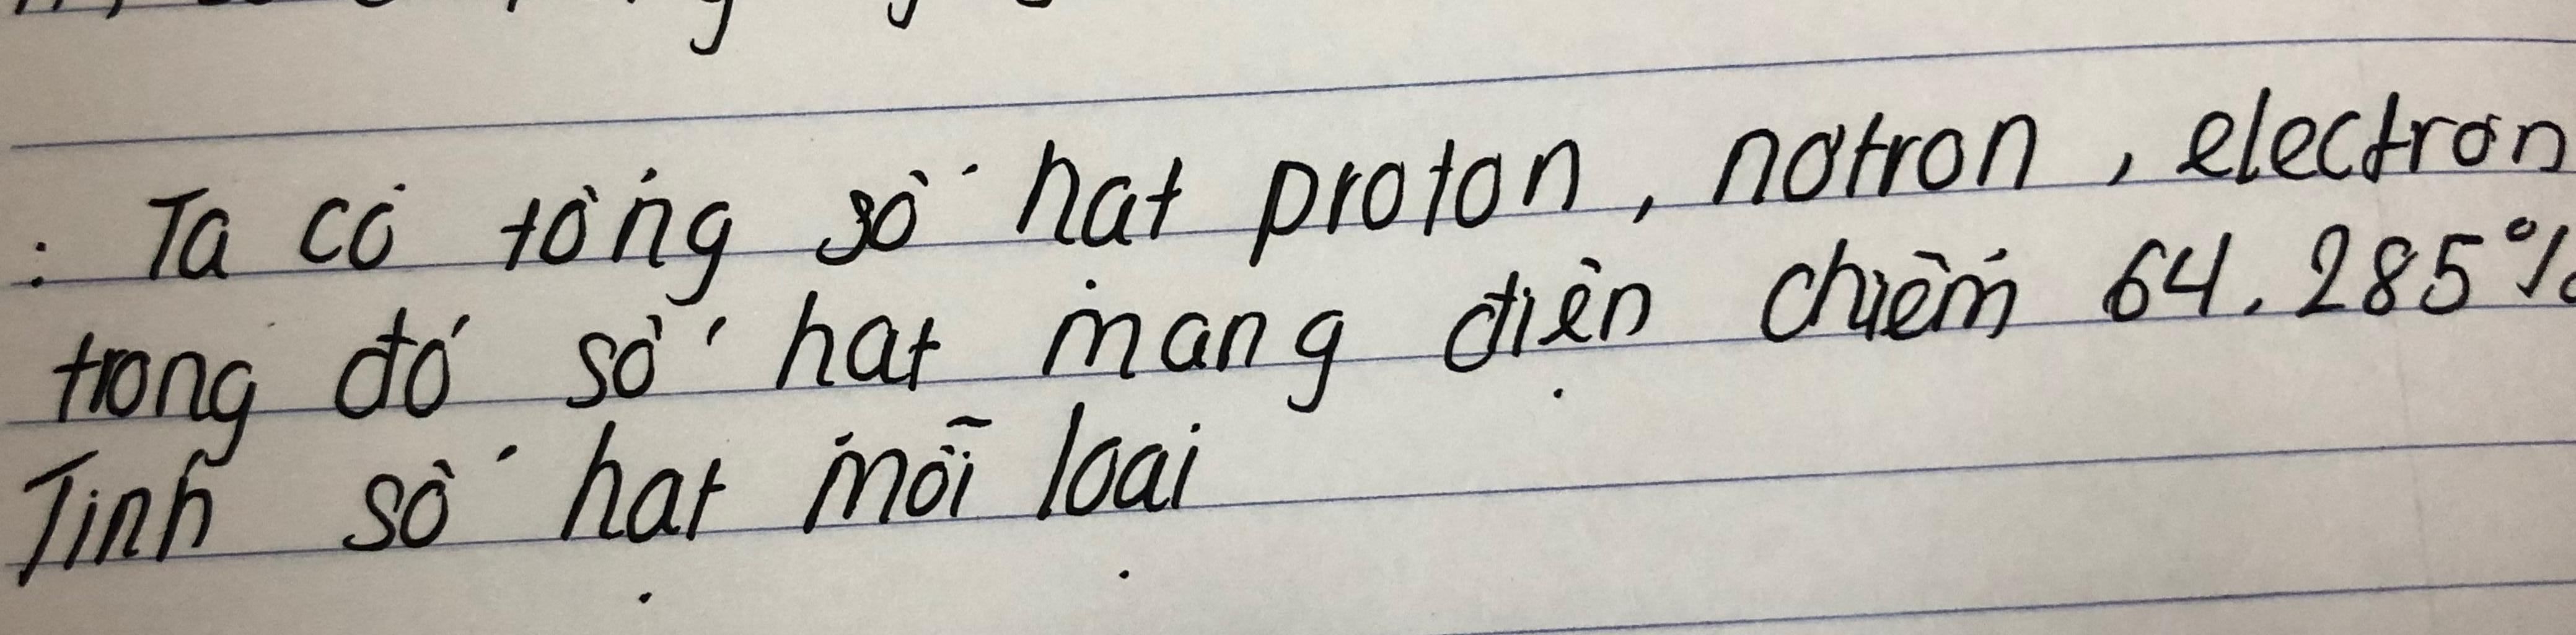 : Ta có tổng số hạt proton, nơtron, electron
trong đó số hạt mang điện chiếm 64.285%
Tính số hạt mỗi loại